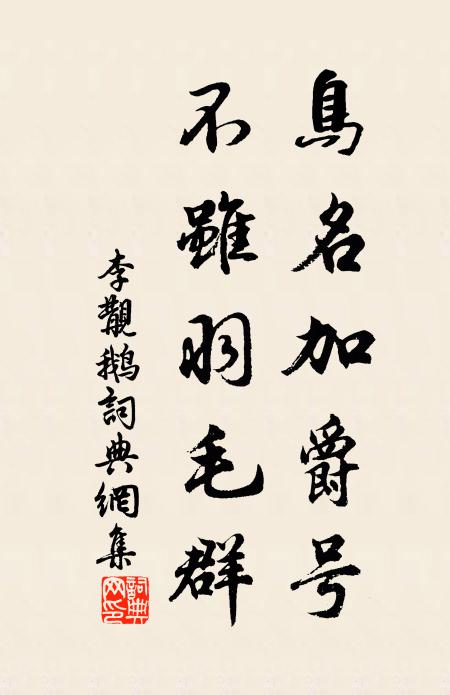 鳥名加爵号
不雖羽毛群
李覯鵝詞典網集
詞典网印